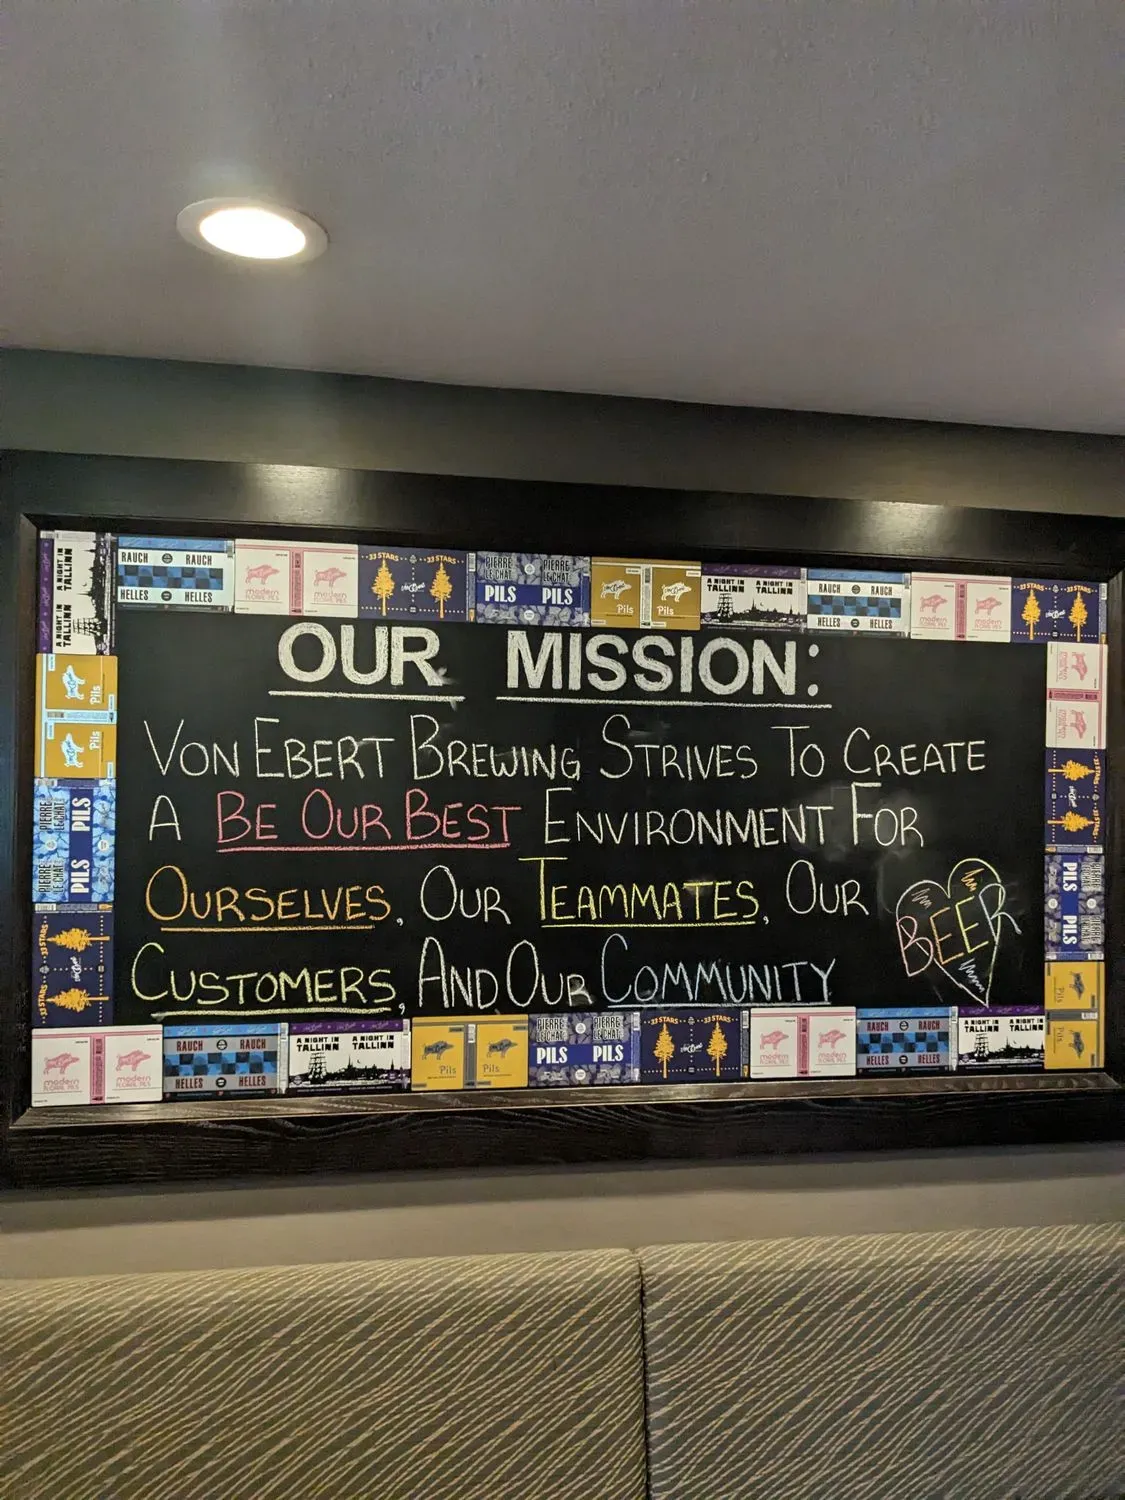 A NIGHT IN TALLINN
RAUCH RAUCH
HELLES HELLES
modern
FLORAL PILS
33 STARS 33 STARS
PIERRE LE CHAT PIERRE LE CHAT
PILS PILS
Pils Pils
A NIGHT IN TALLINN A NIGHT IN TALLINN
RAUCH RAUCH
HELLES HELLES
modern modern
33 STARS
OUR MISSION:
VON EBERT BREWING STRIVES TO CREATE
A BE OUR BEST ENVIRONMENT FOR
OURSELVES, OUR TEAMMATES, OUR
CUSTOMERS, AND OUR COMMUNITY
BEER
Pils
PIERRE LE CHAT PILS
PILS
33 STARS 33 STARS
PILS PILS
Pils
modern modern
FLORAL PILS FLORAL PILS
RAUCH RAUCH
HELLES HELLES
A NIGHT IN TALLINN A NIGHT IN TALLINN
Pils Pils
PIERRE LE CHAT PIERRE LE CHAT
PILS PILS
33 STARS 33 STARS
modern modern
FLORAL PILS FLORAL PILS
RAUCH RAUCH
HELLES HELLES
A NIGHT IN TALLINN A NIGHT IN TALLINN